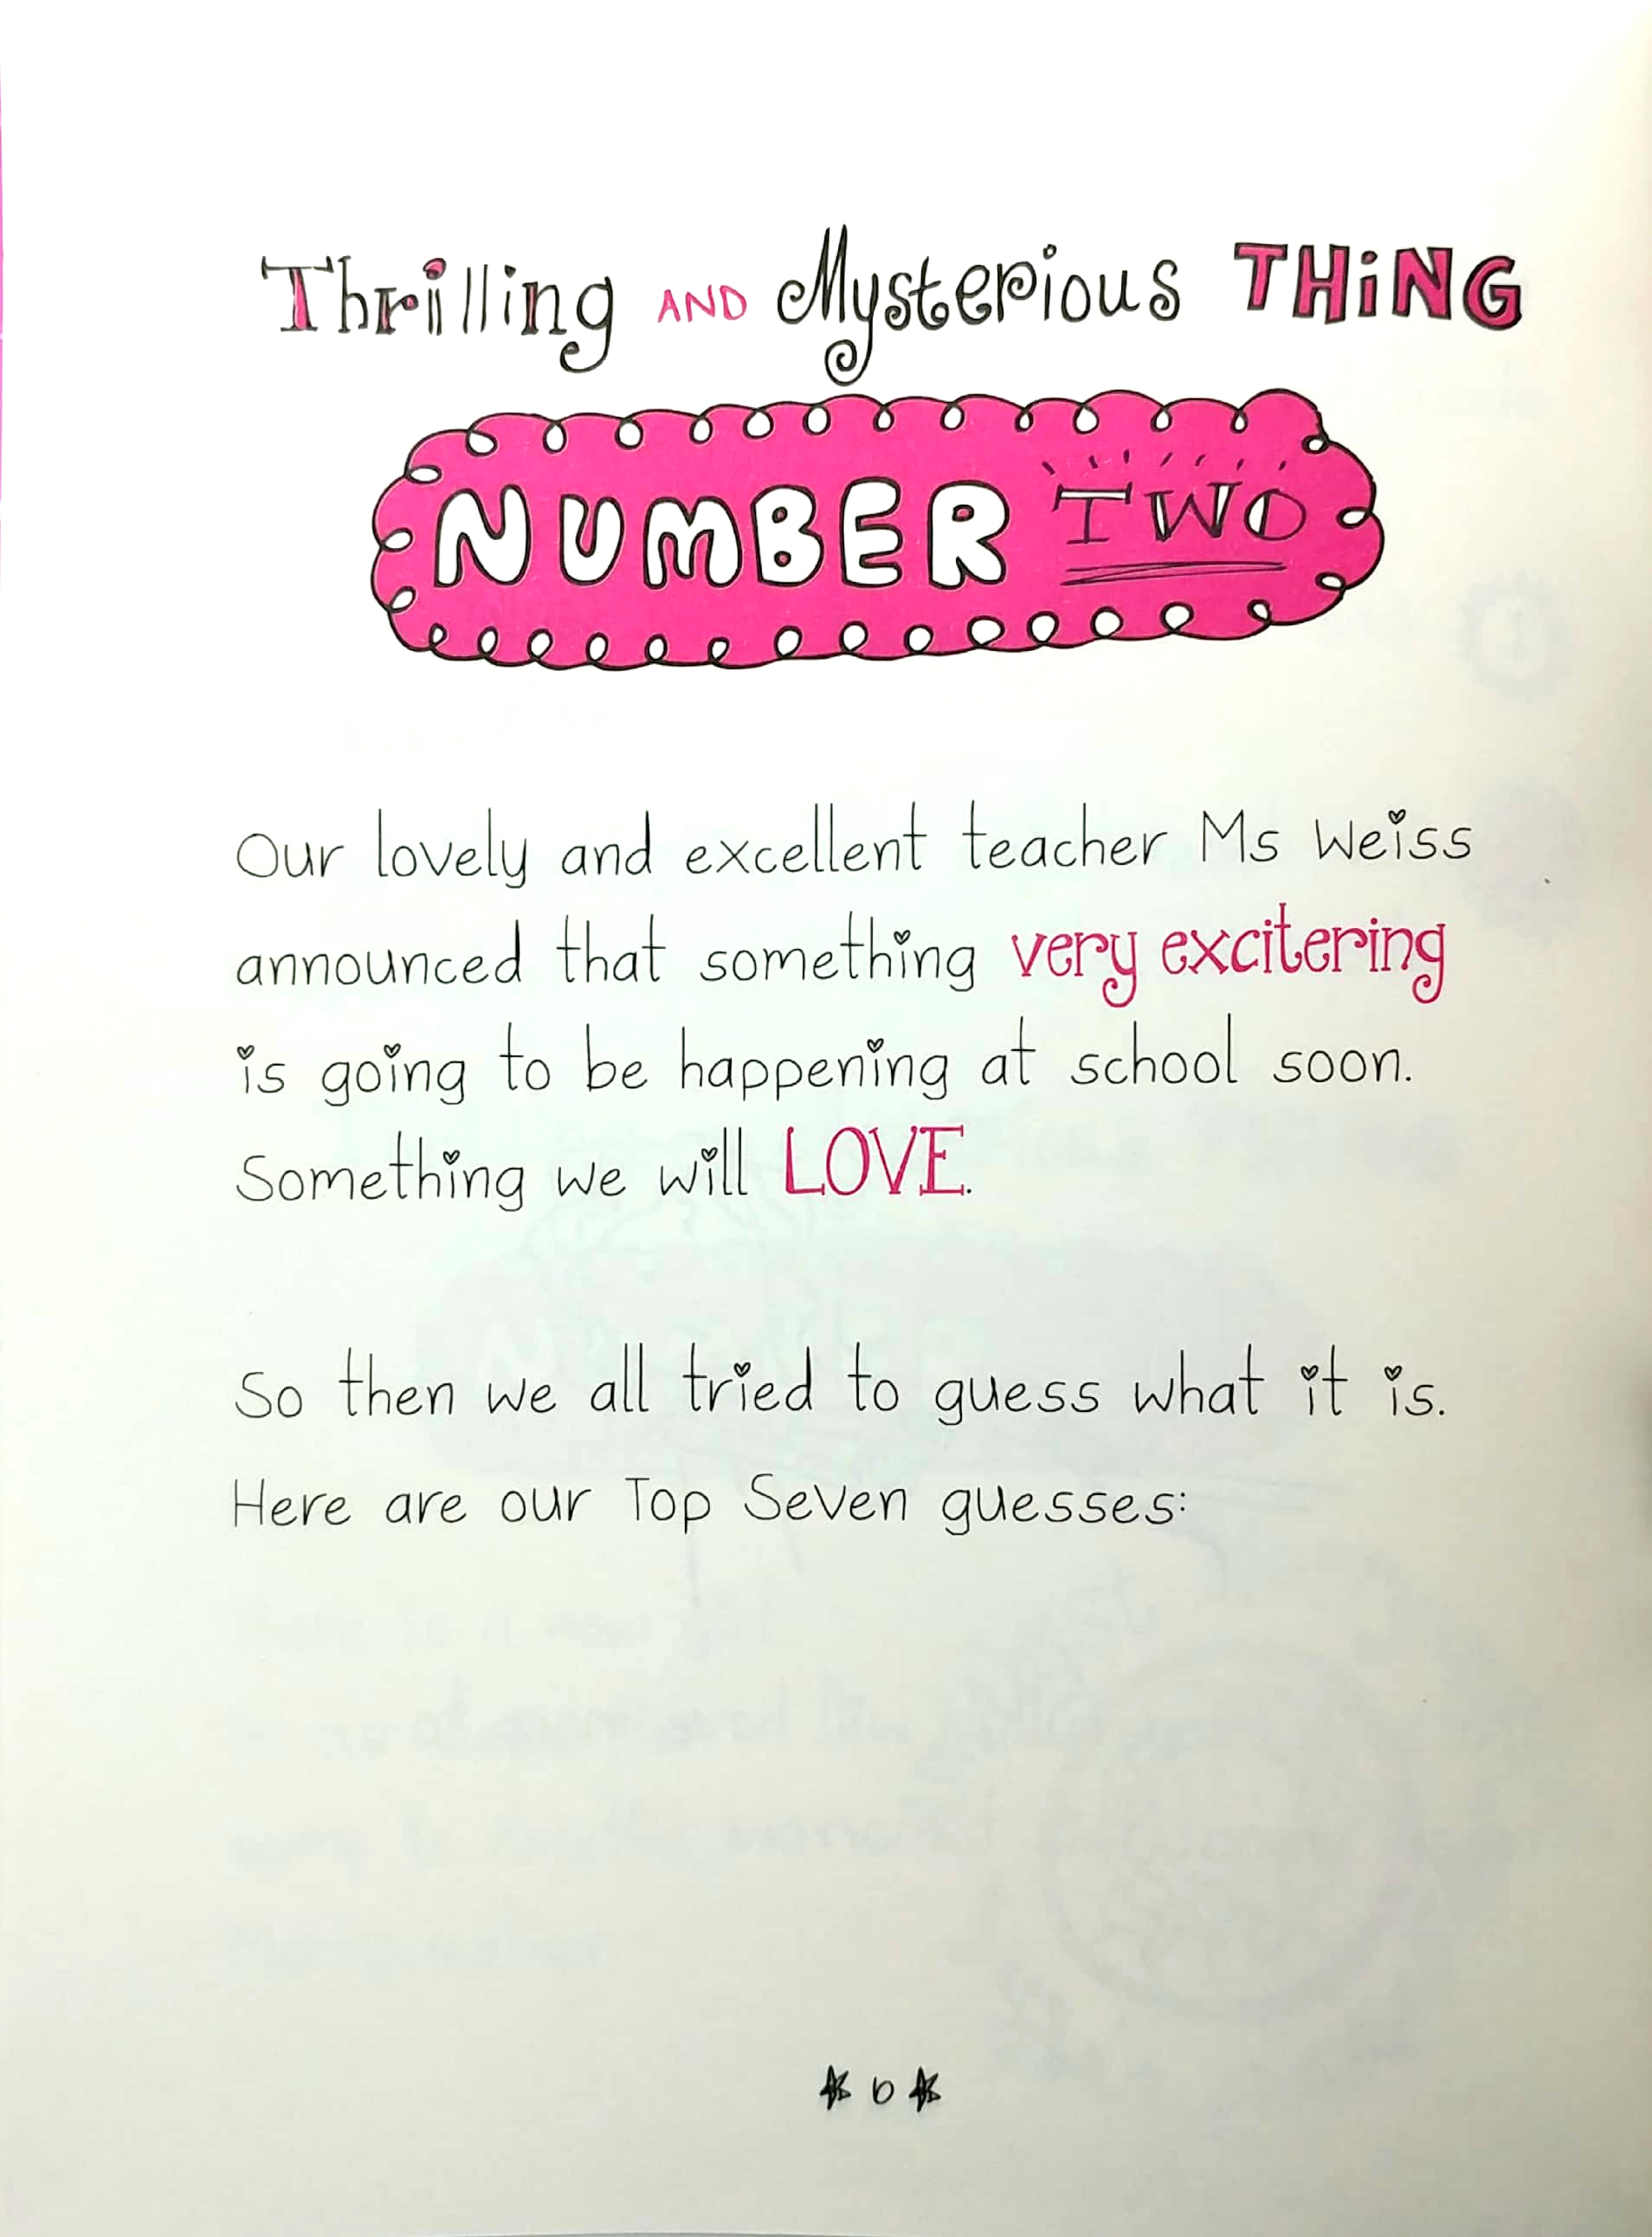 Thrilling AND Mysterious THiNG
NUMBER TWO
Our lovely and excellent teacher Ms Weiss
announced that something very excitering
is going to be happening at school soon.
Something we will LOVE.
So then we all tried to guess what it is.
Here are our Top Seven guesses:
6